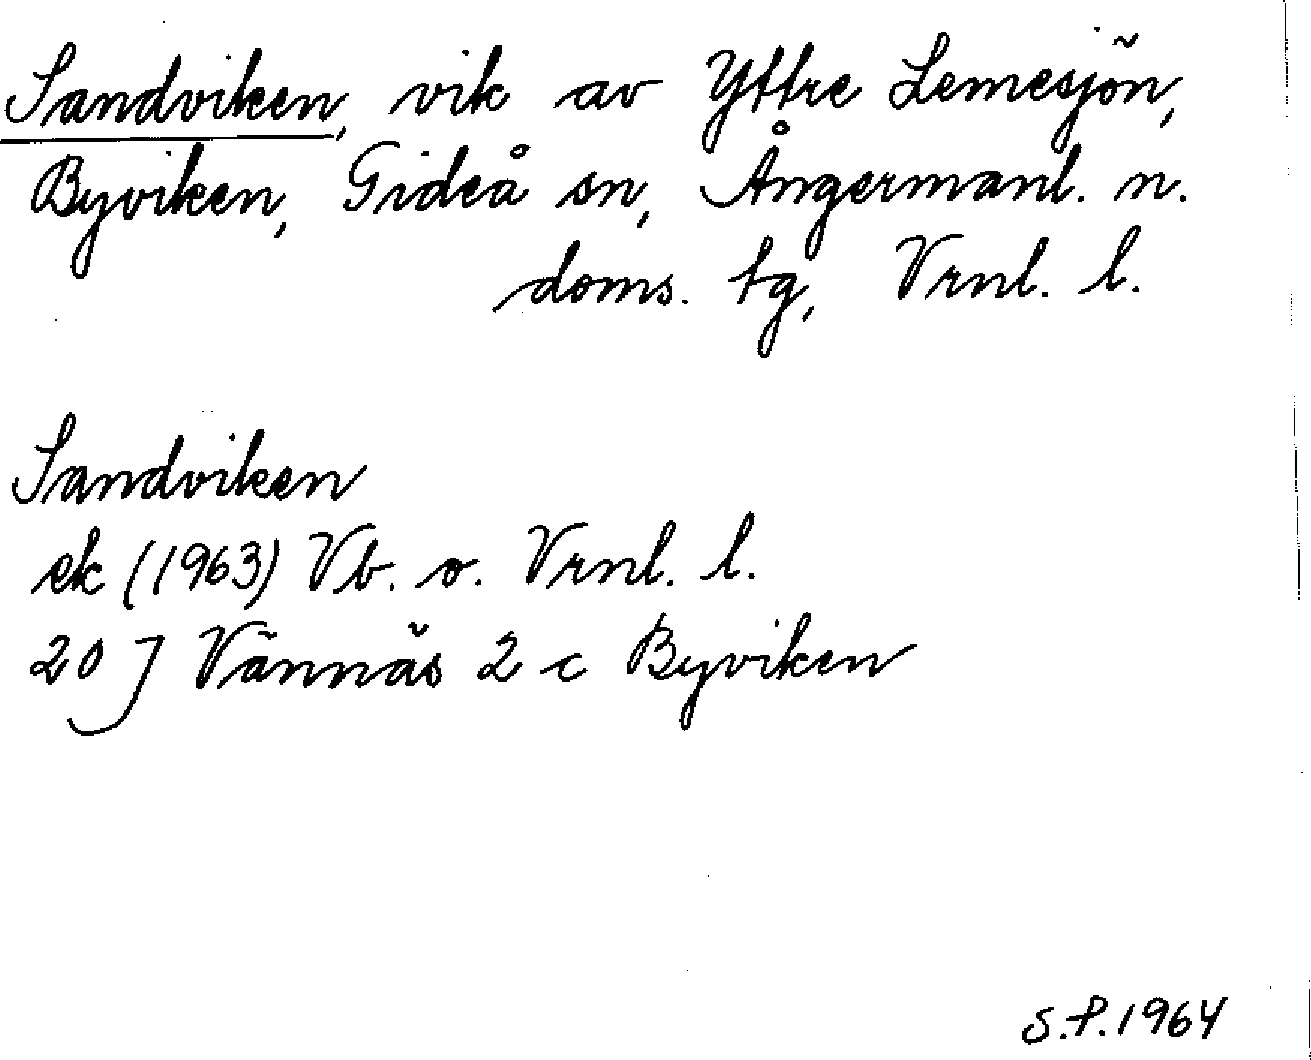 Sandviken, vik av Yttre Lemesjön,
Byviken, Gideå sn, Ångermanl. n.
doms. tg, Vrnl. l.
Sandviken
ek (1963) Vb. o. Vrnl. l.
20 J Vännäs 2 c Byviken
S.P. 1964